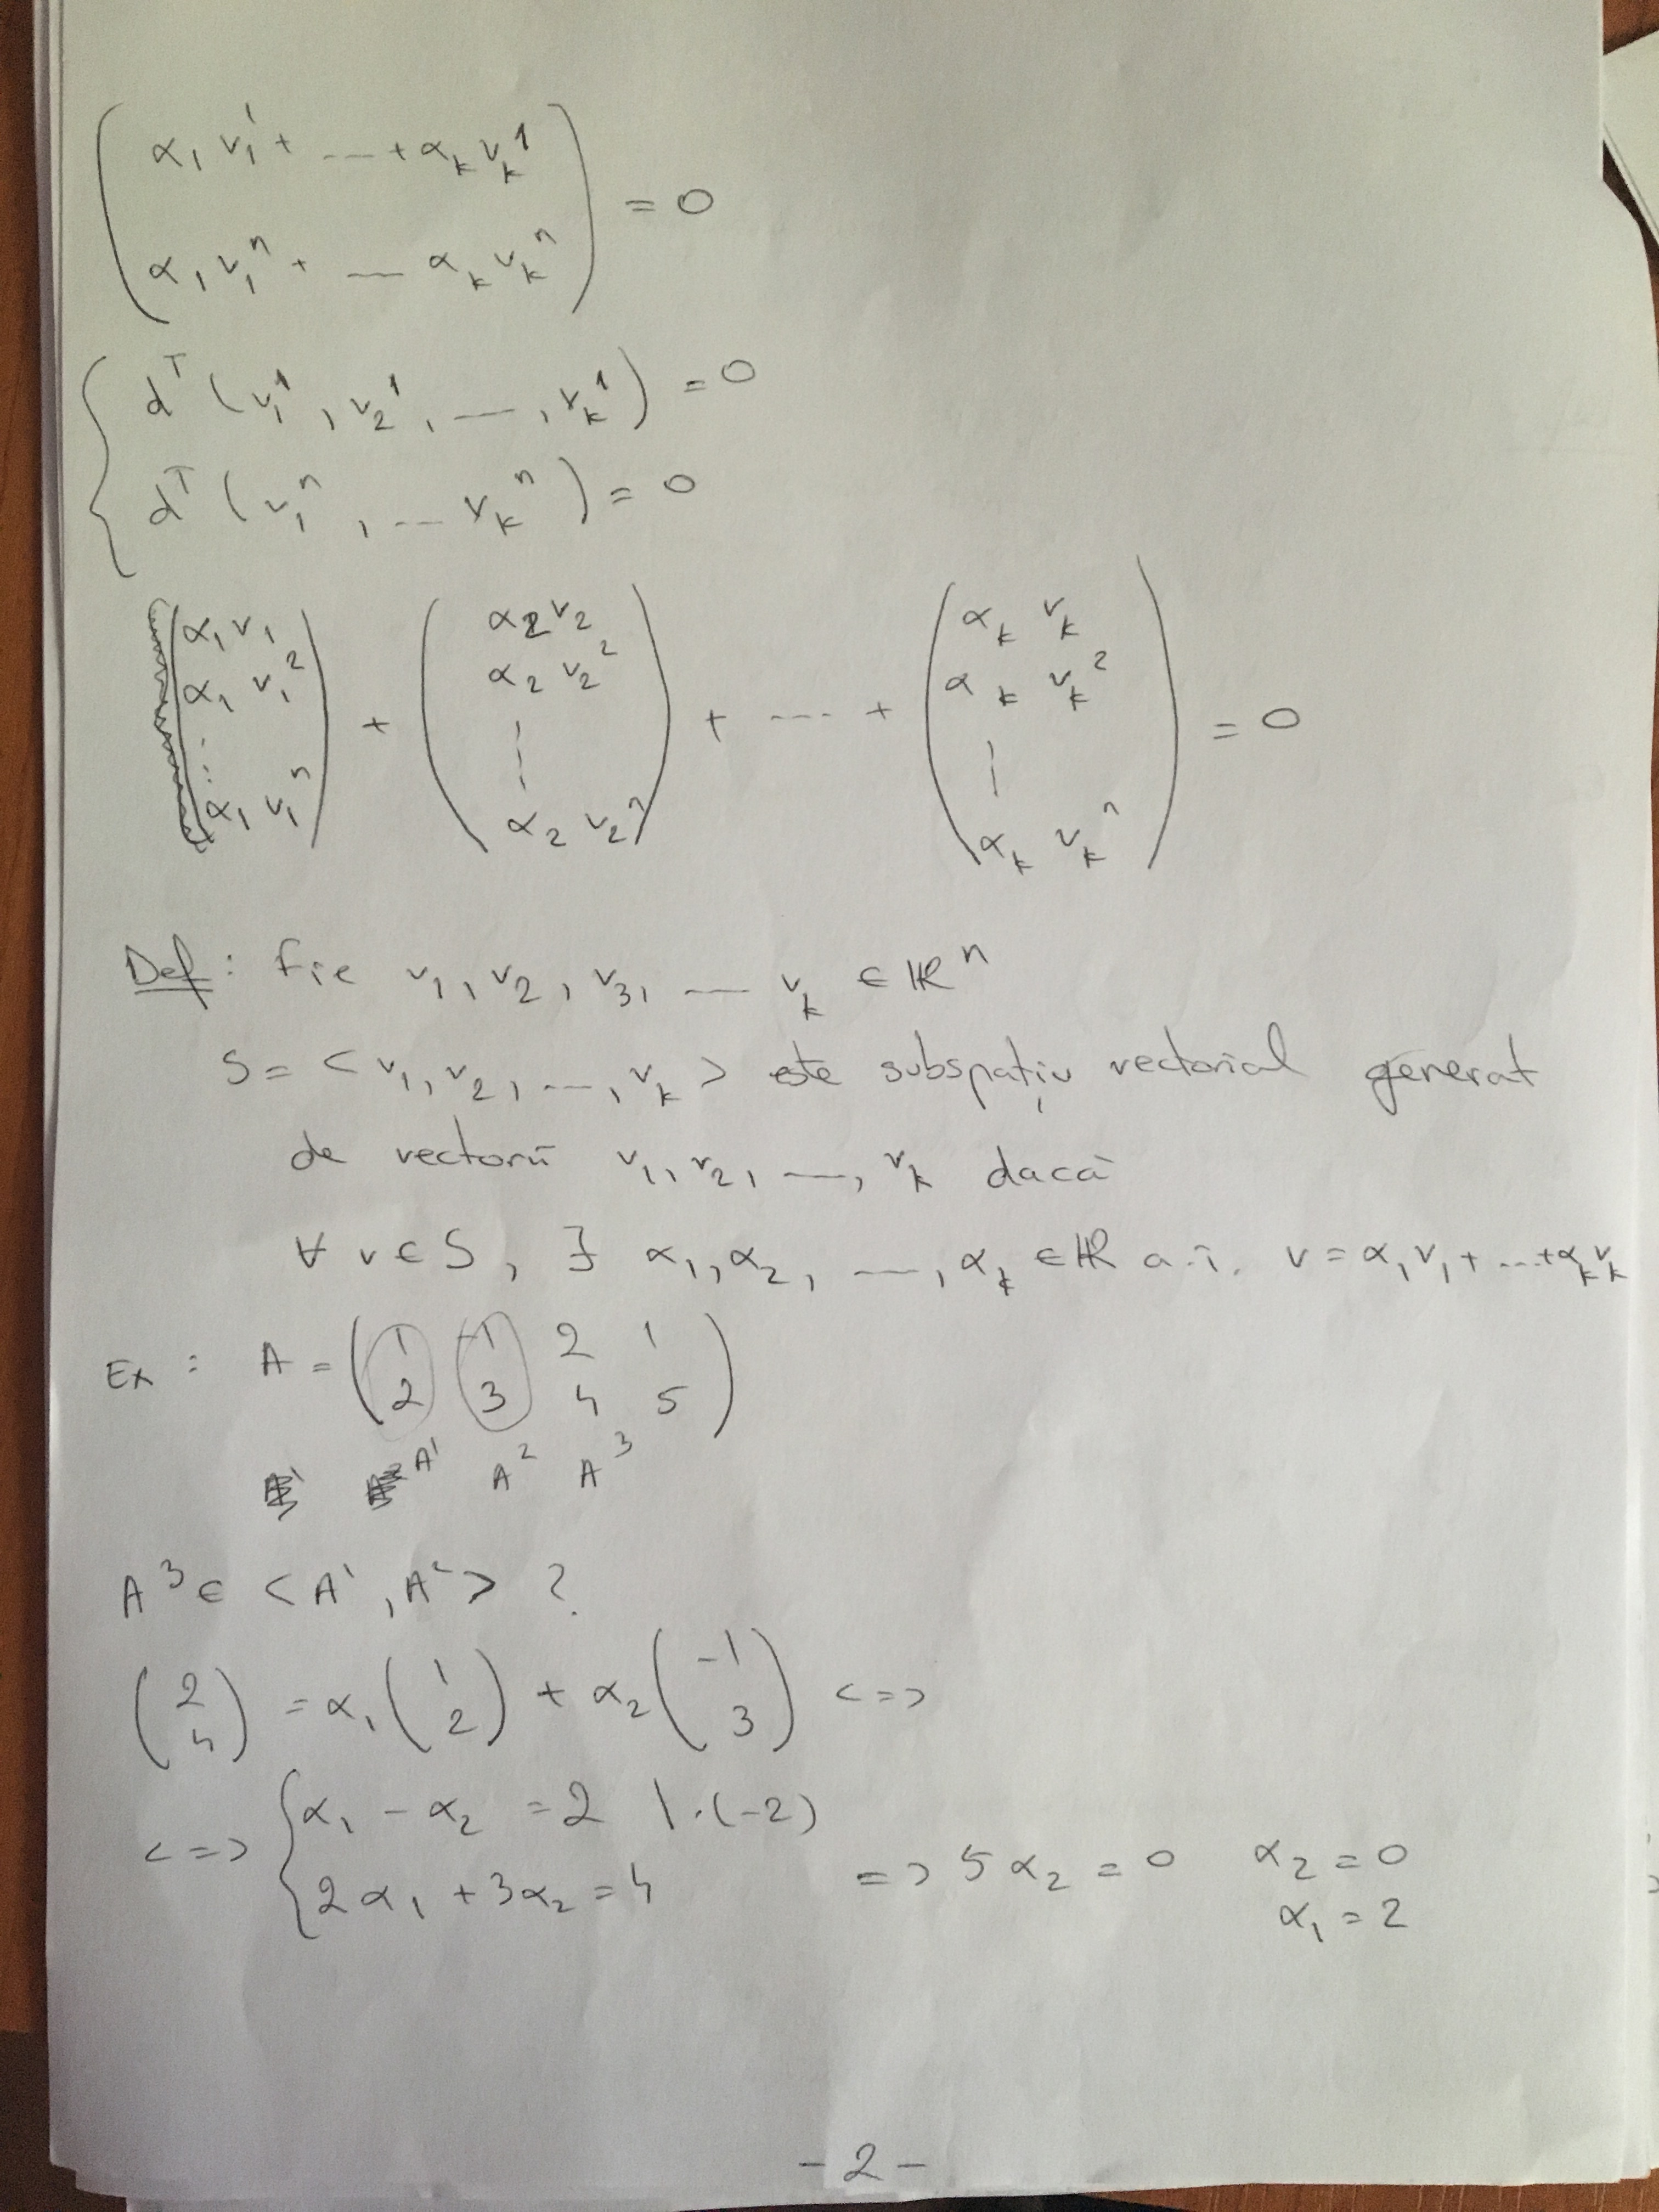 ( α₁ v₁¹ + ... + αₖ vₖ¹
α₁ v₁ⁿ + ... αₖ vₖⁿ ) = 0
{ dᵀ ( v₁¹ , v₂¹ , ... , vₖ¹ ) = 0
dᵀ ( v₁ⁿ , ... vₖⁿ ) = 0
( α₁ v₁ α₁ v₁² ... α₁ v₁ⁿ ) + ( α₂ v₂ α₂ v₂² ⋮ α₂ v₂ⁿ ) + .... + ( αₖ vₖ αₖ vₖ² ⋮ αₖ vₖⁿ ) = 0
Def : Fie v₁, v₂, v₃, ... vₖ ∈ ℝⁿ
S = < v₁, v₂, ..., vₖ > este subspațiu vectorial generat
de vectorii v₁, v₂, ..., vₖ dacă
∀ v ∈ S , ∃ α₁, α₂, ..., αₖ ∈ ℝ a.î. v = α₁v₁ + ... + αₖvₖ
Ex : A = ( 1 -1 2 1
2 3 4 5 )
A¹ A² A³
A³ ∈ < A¹ , A² > ?
( 2 4 ) = α₁ ( 1 2 ) + α₂ ( -1 3 ) <=>
<=> { α₁ - α₂ = 2 | · (-2)
2α₁ + 3α₂ = 4 => 5α₂ = 0 α₂ = 0
α₁ = 2
- 2 -